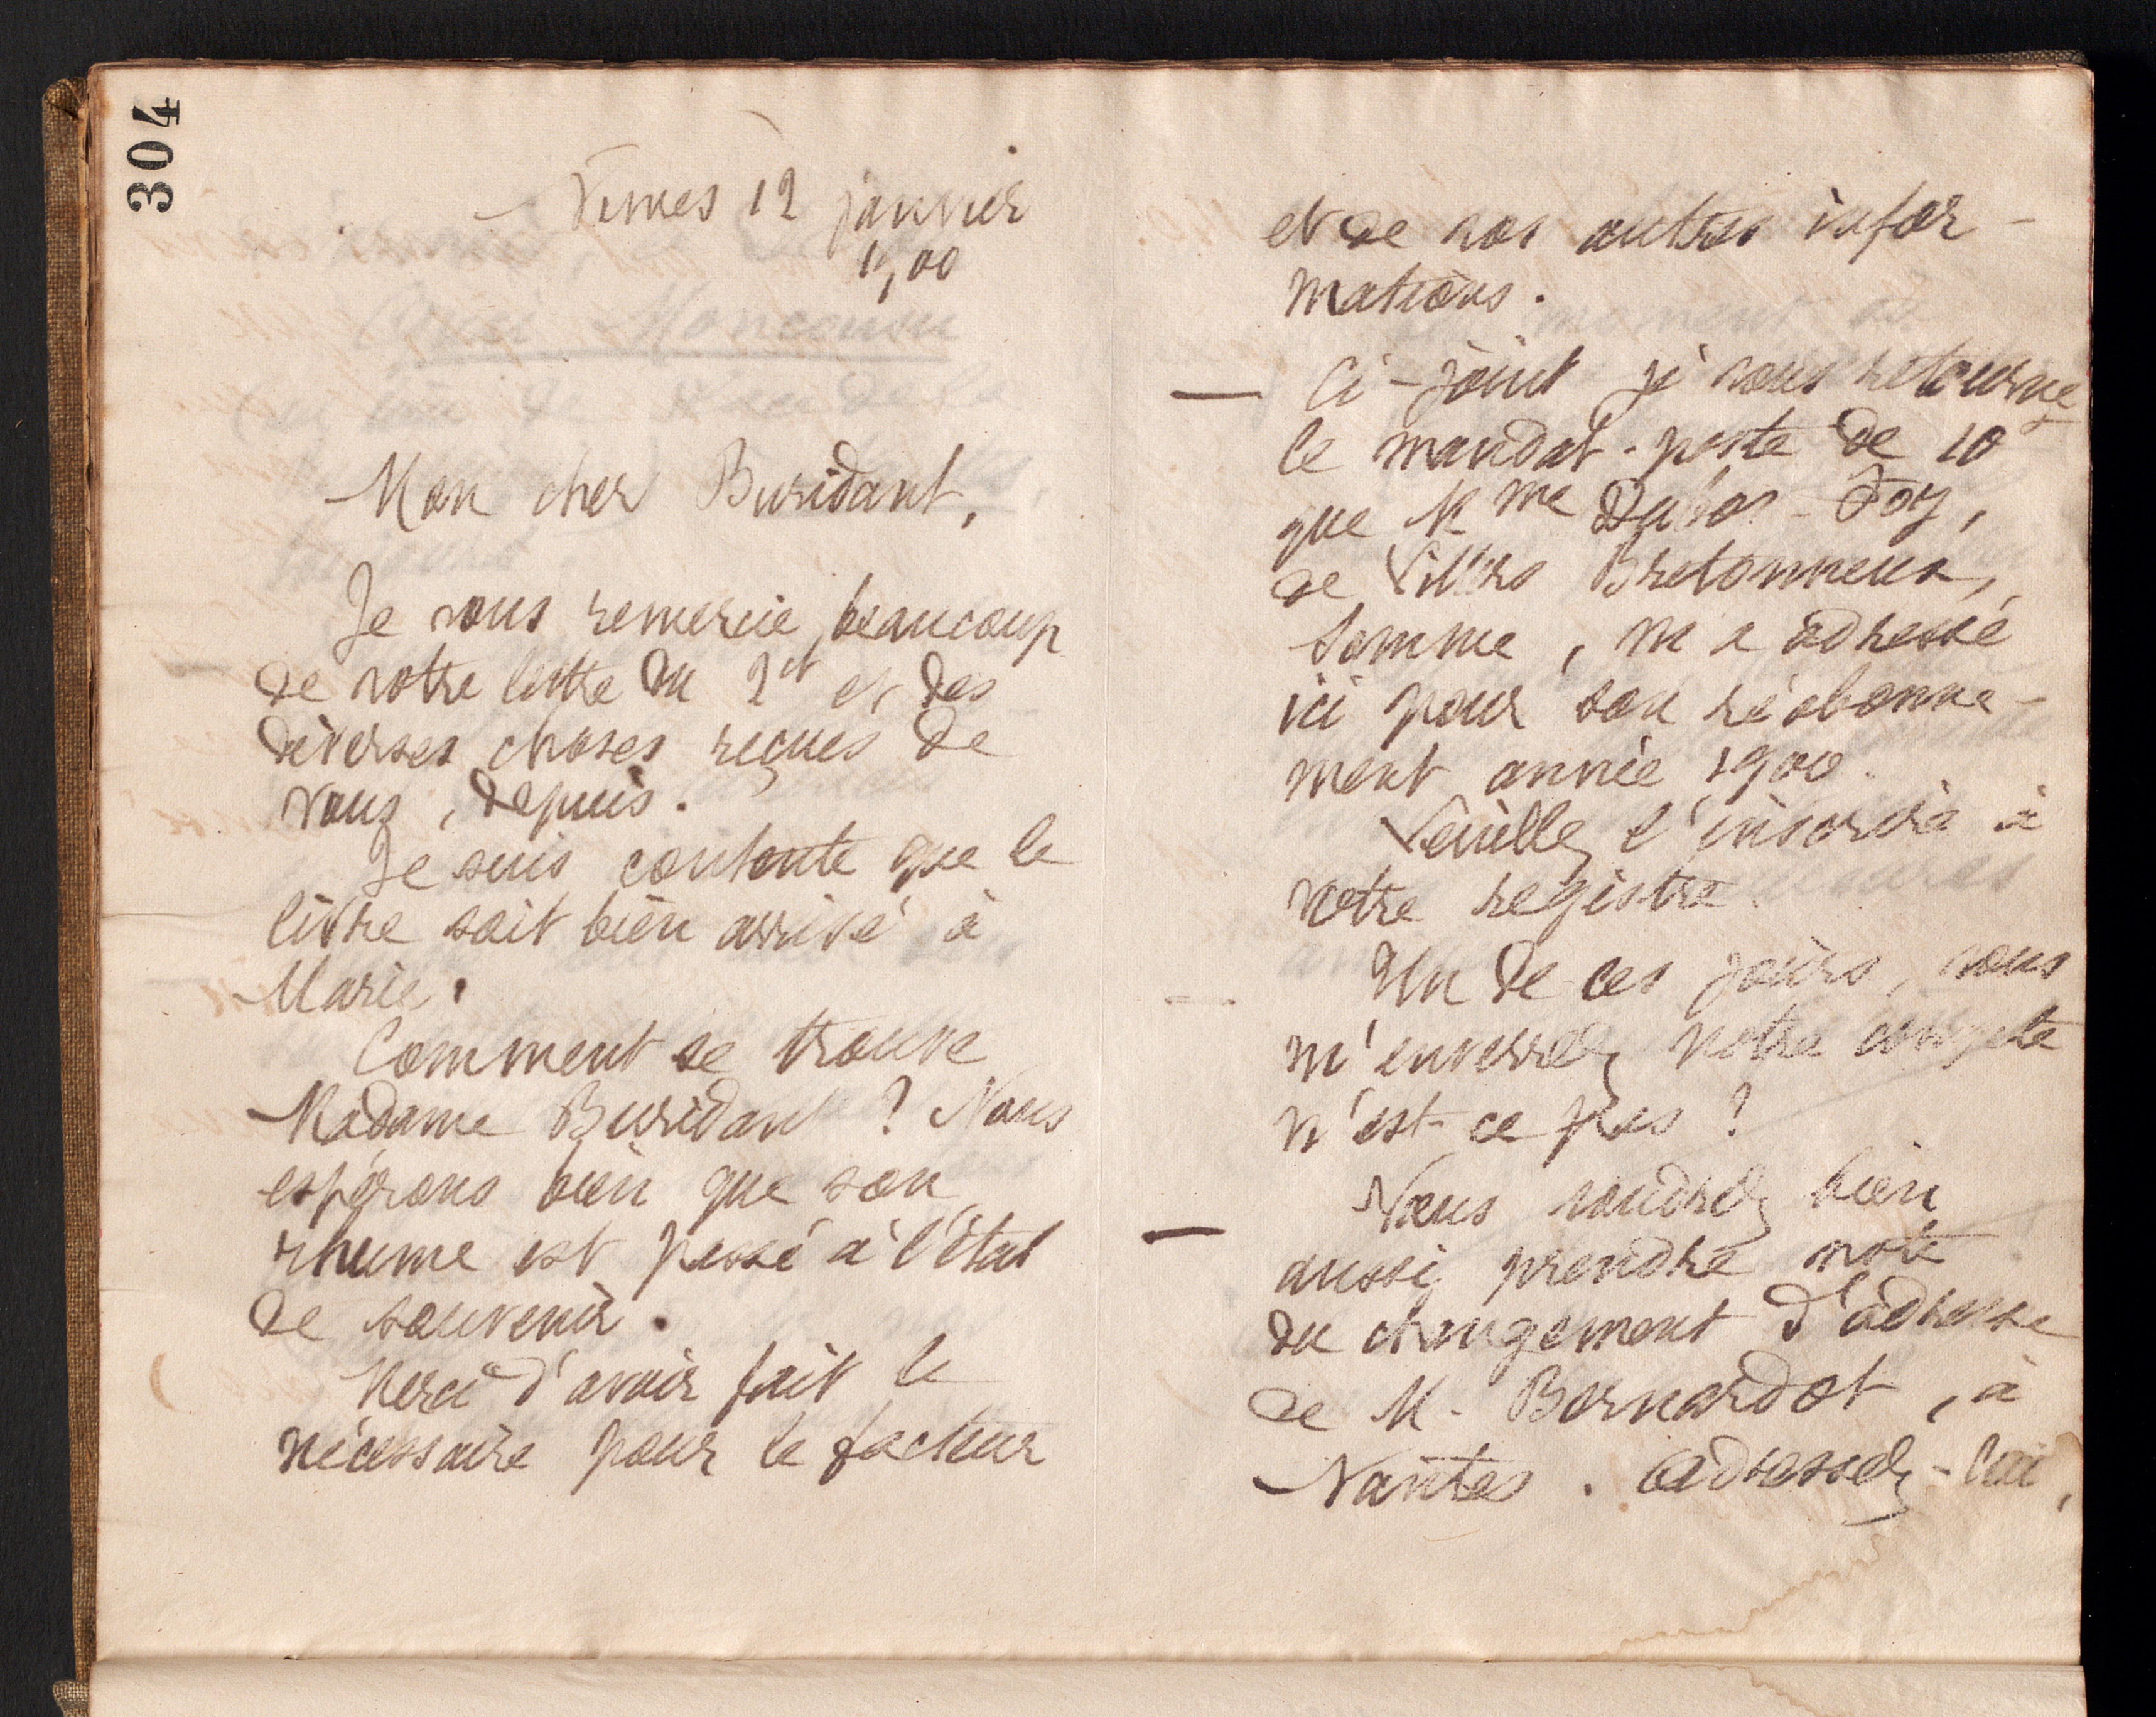 304
Nîmes 12 janvier
1900
Mon cher Buridant,
Je vous remercie beaucoup
de votre lettre du 2 ct et des
diverses choses reçues de
vous, depuis.
Je suis contente que le
livre soit bien arrivé à
Marie.
Comment se trouve
Madame Buridant ? Nous
espérons bien que son
rhume est passé à l'état
de souvenir.
Merci d'avoir fait le
nécessaire pour le facteur
et de vos autres infor-
mations.
— Ci-joint je vous retourne
le mandat-poste de 10
que Mme
de Villers Bretonneux,
Somme, m'a adressé
ici pour son réabonne-
ment année 1900.
Veuillez l'inscrire à
votre registre.
Un de ces jours, vous
m'enverrez votre compte
n'est-ce pas ?
— Vous voudrez bien
aussi prendre note
du changement d'adresse
de M. Bernardot, à
Nantes. Adressez-lui,